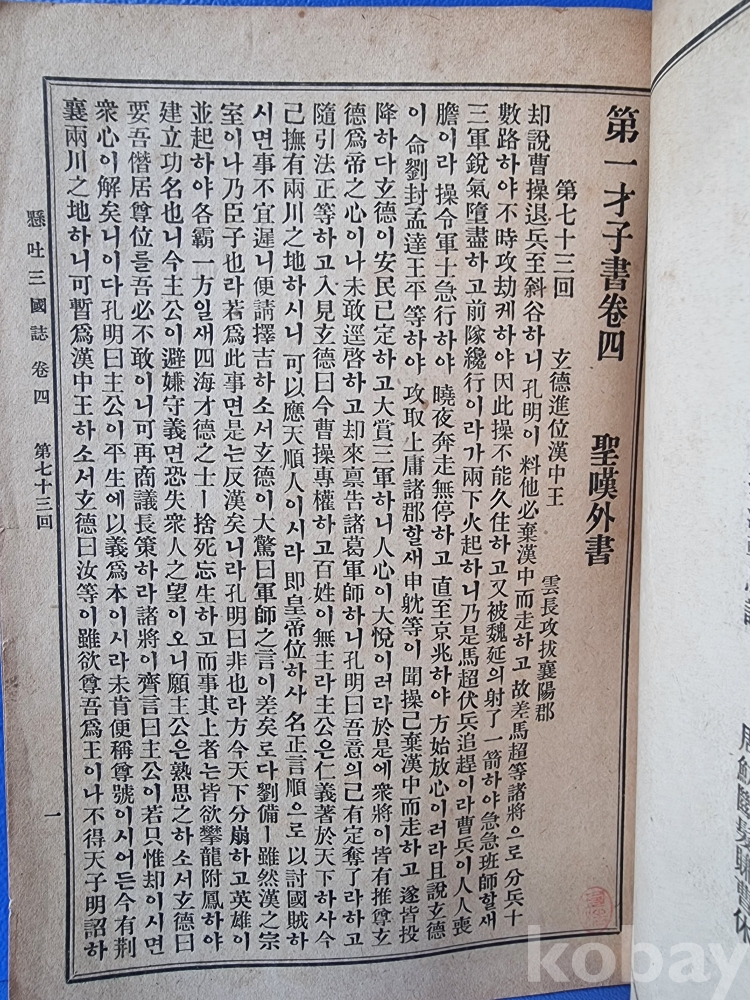 第一才子書卷四 聖嘆外書
第七十三回 玄德進位漢中王 雲長攻拔襄陽郡
却說曹操退兵至斜谷하니 孔明이 料他必棄漢中而走하고 故差馬超等諸將으로 分兵十
數路하야 不時攻劫케하야 因此操不能久住하고 又被魏延의 射了一箭하야 急急班師할새
三軍銳氣墮盡하고 前隊纔行이라가 兩下火起하니 乃是馬超伏兵追趕이라 曹兵이 人人喪
膽이라 操令軍士急行하야 曉夜奔走無停하고 直至京兆하야 方始放心이러라 且說玄德
이 命劉封孟達王平等하야 攻取上庸諸郡할새 申耽等이 聞操已棄漢中而走하고 遂皆投
降하다 玄德이 安民已定하고 大賞三軍하니 人心이 大悅이러라 於是에 衆將이 皆有推尊玄
德爲帝之心이나 未敢逕啓하고 却來禀告諸葛軍師하니 孔明曰吾意의 已有定奪了라하고
隨引法正等하고 入見玄德曰今曹操專權하고 百姓이 無主라 主公은 仁義著於天下하사 今
已撫有兩川之地하시니 可以應天順人이시라 即皇帝位하사 名正言順으로 以討國賊하
시면 事不宜遲니 便請擇吉하소서 玄德이 大驚曰軍師之言이 差矣로다 劉備ㅣ 雖然漢之宗
室이나 乃臣子也라 若爲此事면 是는 反漢矣니라 孔明曰非也라 方今天下分崩하고 英雄이
並起하야 各霸一方일새 四海才德之士ㅣ 捨死忘生하고 而事其上者는 皆欲攀龍附鳳하야
建立功名也니 今主公이 避嫌守義면 恐失衆人之望이오니 願主公은 熟思之하소서 玄德曰
要吾僭居尊位를 吾必不敢이니 可再商議長策하라 諸將이 齊言曰主公이 若只惟却이시면
衆心이 解矣니이다 孔明曰主公이 平生에 以義爲本이시라 未肯便稱尊號이시어든 今有荊
襄兩川之地하니 可暫爲漢中王하소서 玄德曰汝等이 雖欲尊吾爲王이나 不得天子明詔하
懸吐三國誌 卷四 第七十三回 一
kobay